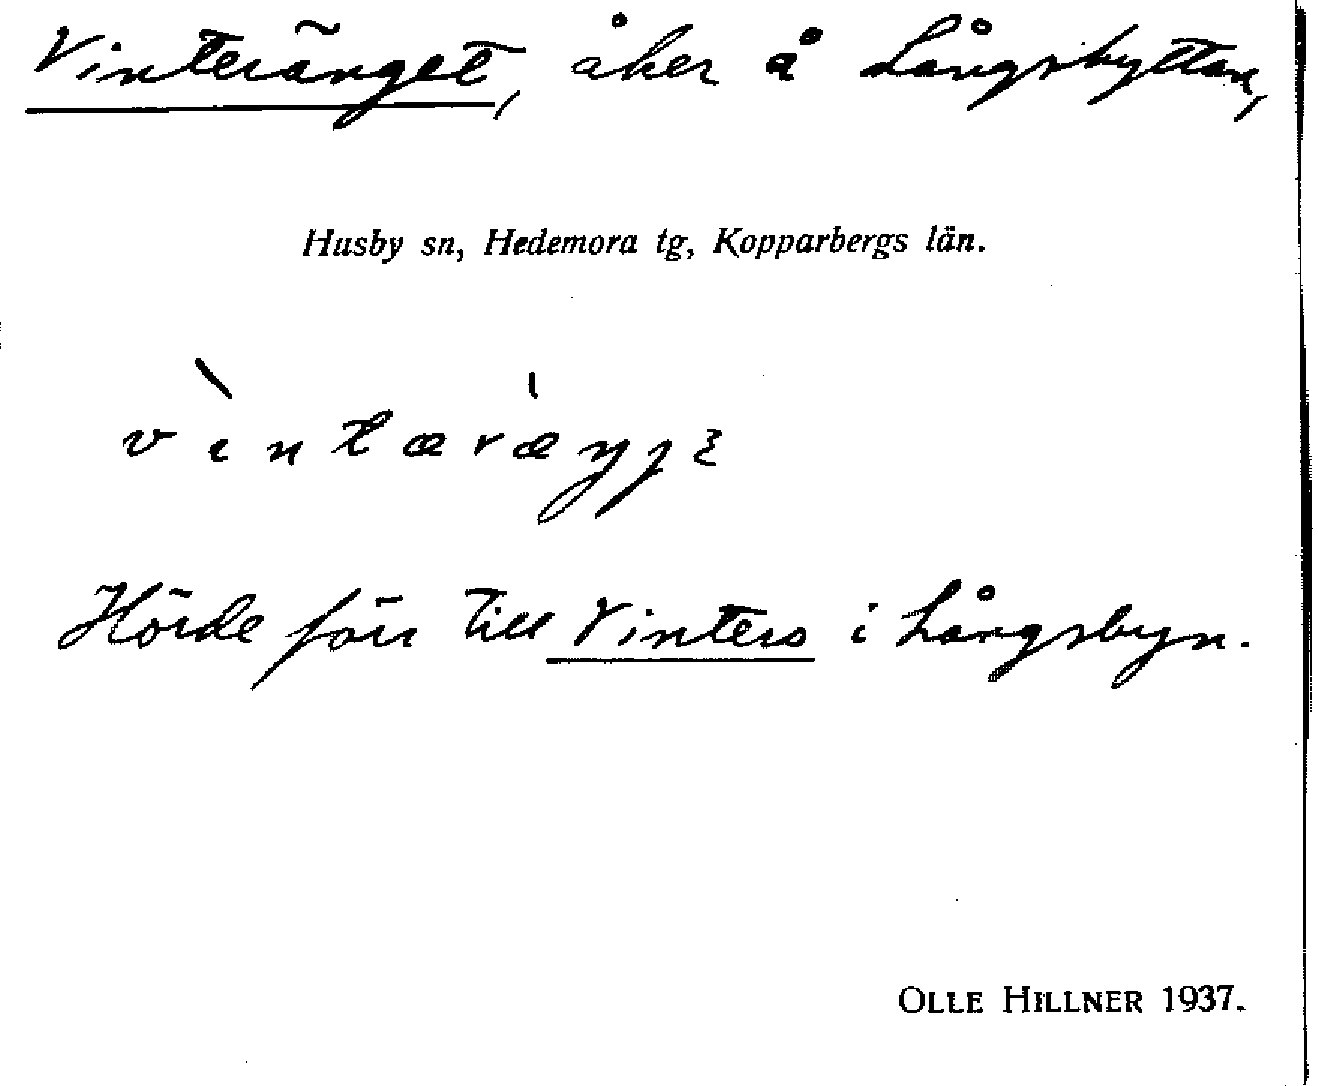 Vinteränget, åker å Långshyttan,
Husby sn, Hedemora tg, Kopparbergs län.
Hörde förr till Vinters i Långsbyn.
OLLE HILLNER 1937.